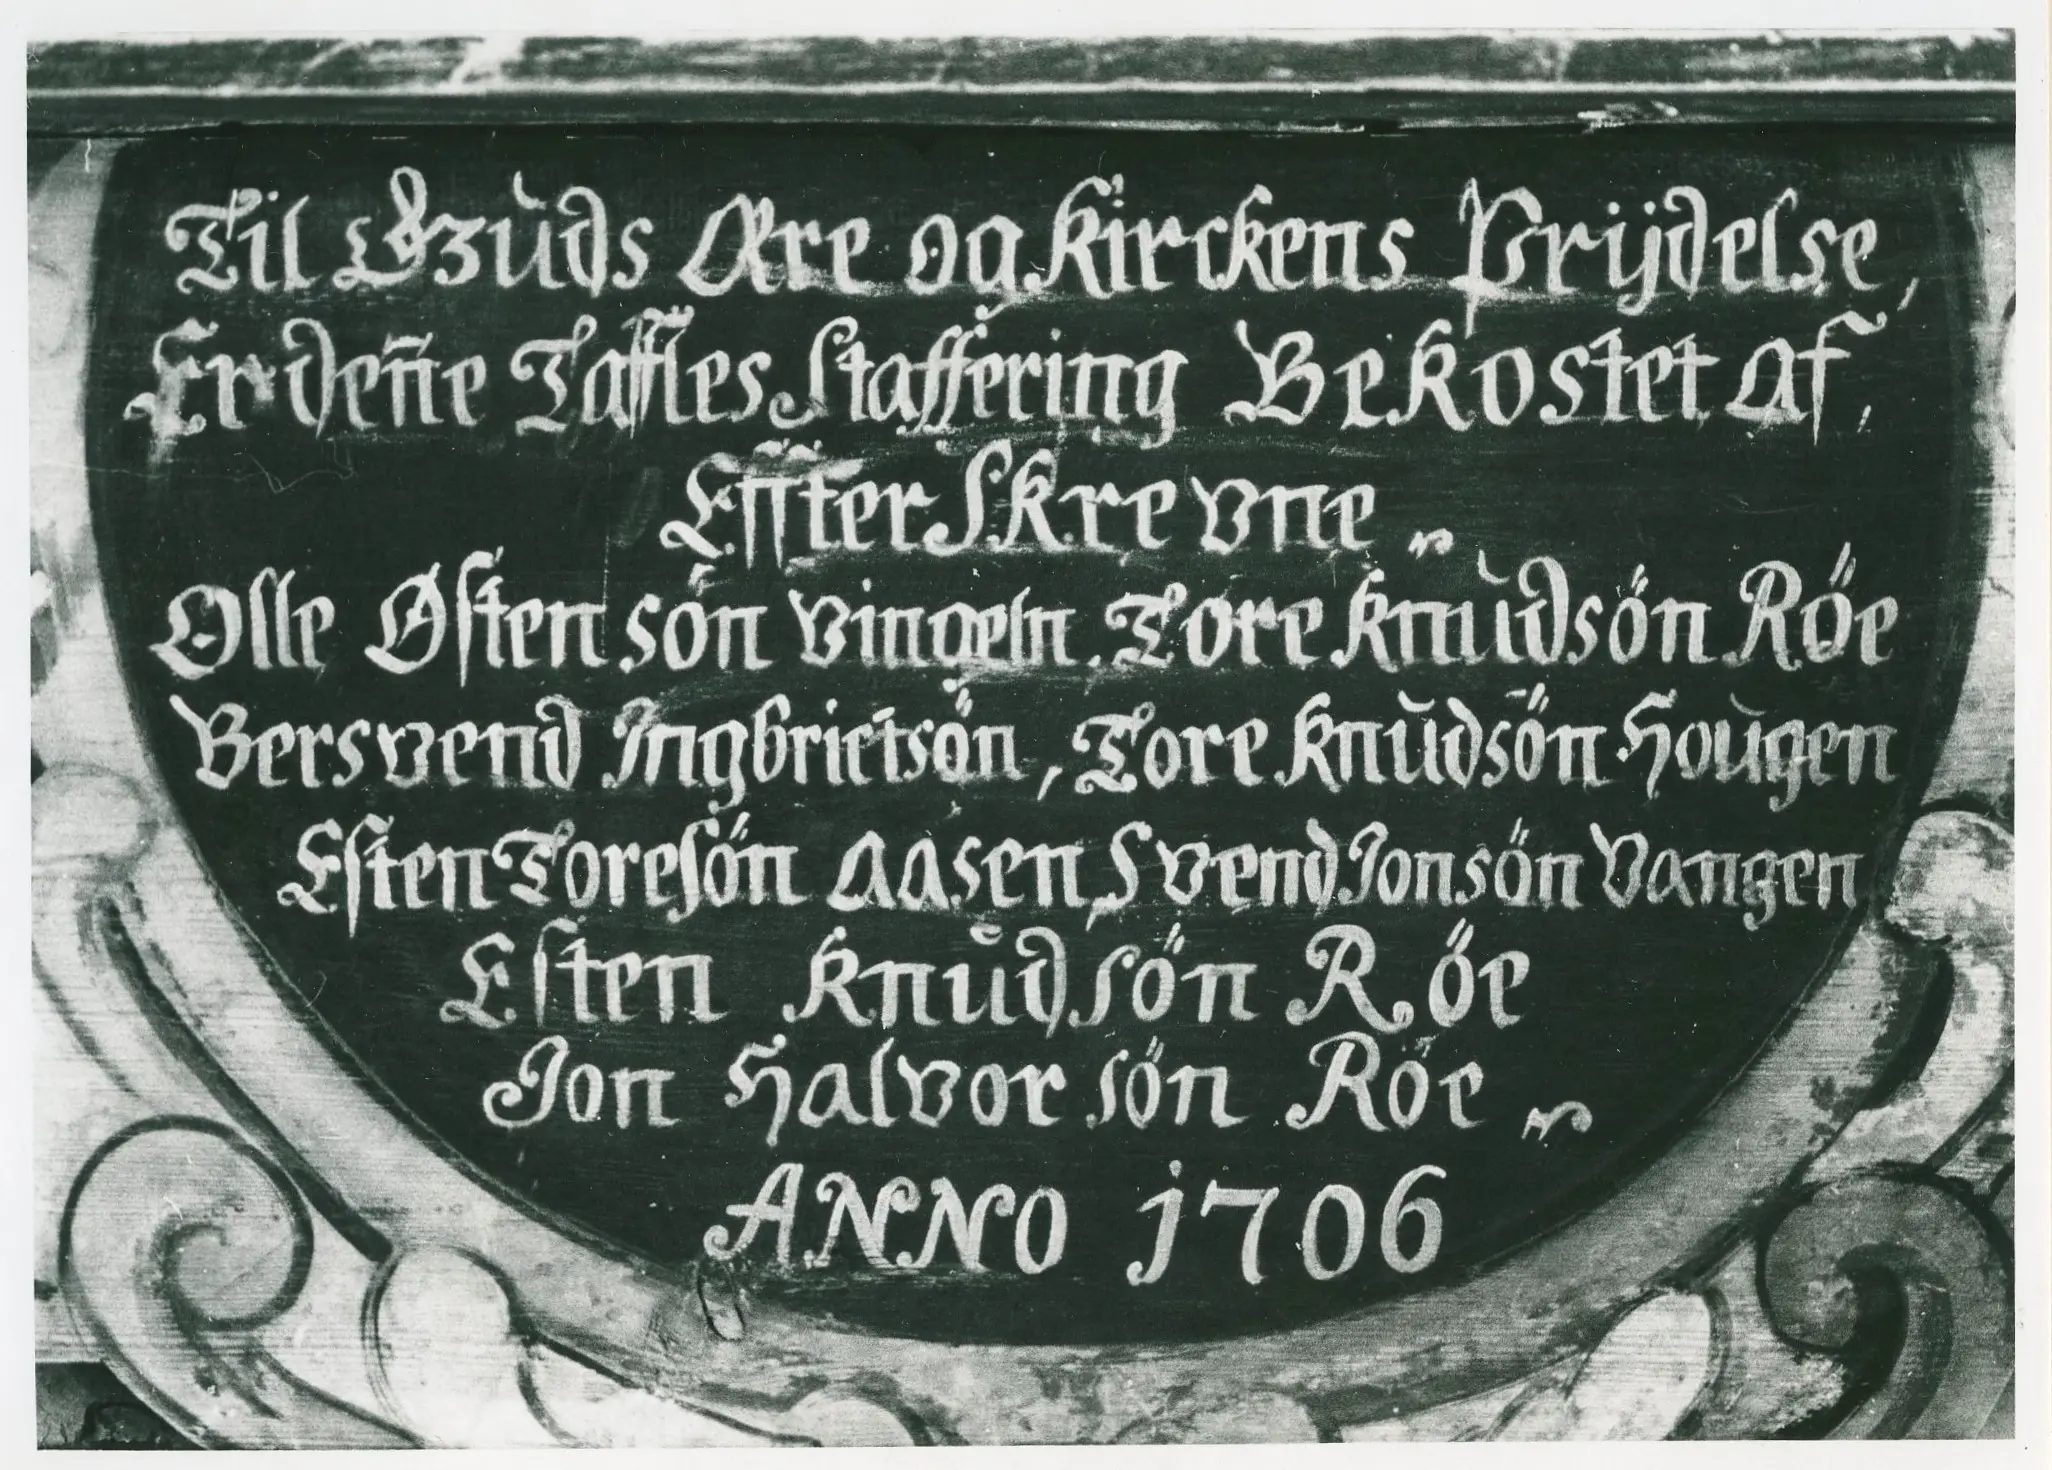 Til Gzŭds Ære og Kirckens Prÿdelse,
Er den̄e Taffles Staffering Bekostet af,
Effter Skrevne
Olle Østensön Vingeln. Tore Knŭdsön Röe
Bersvend Ingbrietsön, Tore Knŭdsön Hoŭgen
Esten Toresön Aasen, Svend Jonsön Vangen
Esten Knŭdsön Röe
Jon Halvorsön Röe
ANNO 1706